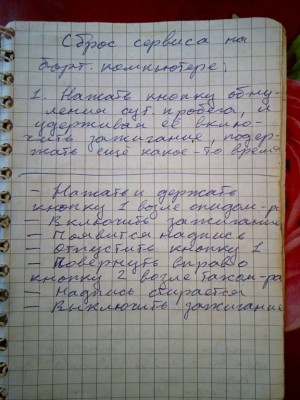 Сброс сервиса на
борт. компьютере.
1. Нажать кнопку обну-
ления сут. пробега, и
удерживая её вклю-
чить зажигание, подер-
жать ещё какое-то время
— Нажать и держать
кнопку 1 возле спидом-ра
— Включить зажигание
— Появится надпись
— Отпустить кнопку 1
— Повернуть вправо
кнопку 2 возле тахом-ра
— Надпись стирается
— Выключить зажигание